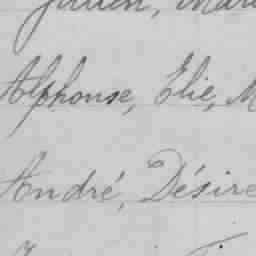 Julien, Mar
Alphonse, Elie, M
André, Désiré